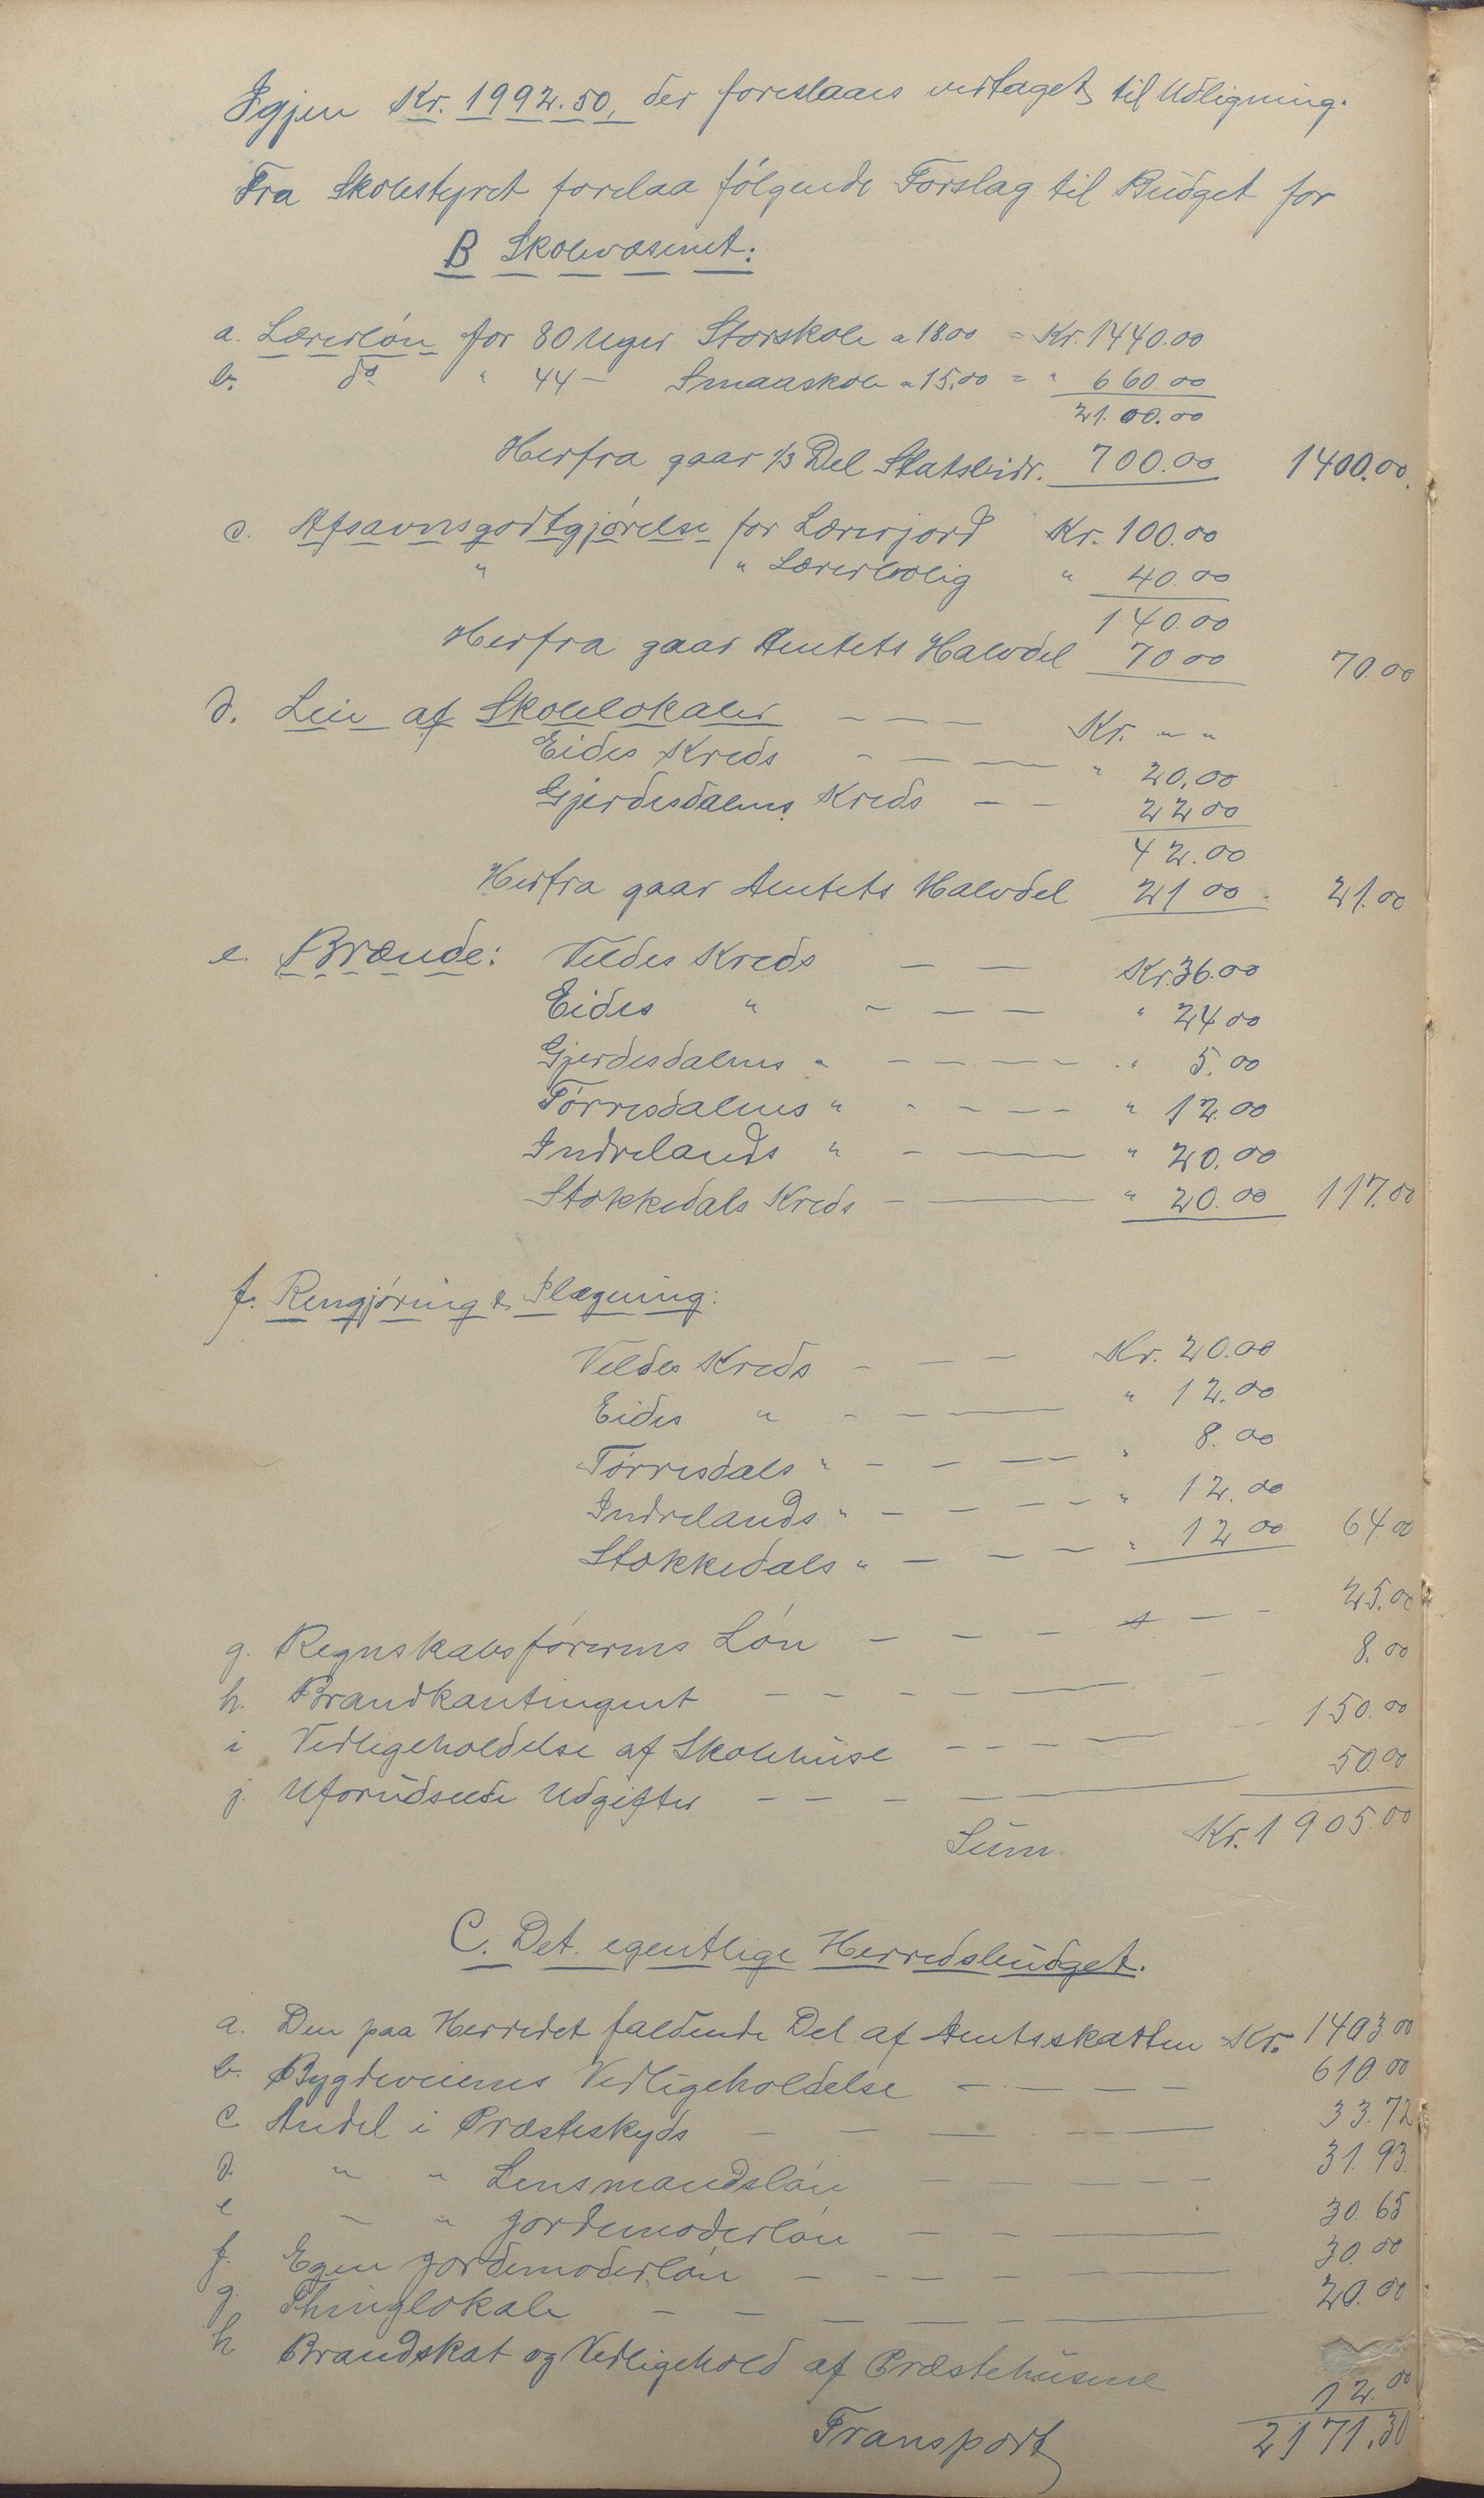 Igjen Kr. 1992.50, der foreslaaes vedtaget til Udligning.
Fra Skolestyret forelaa følgende Forslag til Budget for
B Skolevæsenet:
a. Lærerløn for 80 Uger Storskole a 18.00 = Kr. 1440.00
b. do " 44 - Smaaskole a 15.00 = " 660.00
2100.00
Herfra gaar 1/3 Del Statsbidr. 700.00 1400.00.
c. Afsavnsgodtgjørelse for Lærerjord Kr. 100.00
" " Lærerbolig " 40.00
140.00
Herfra gaar Amtets Halvdel 70 00 70.00
d. Leie af Skolelokaler - - - Kr. " "
Eides Kreds - - - " 20.00
Gjerdesdalens Kreds - - 22 00
42.00
Herfra gaar Amtets Halvdel 21 00. 21.00
e. Brænde: Veldes Kreds - - Kr. 36.00
Eides " - - - " 24 00
Gjerdesdalens " - - - - " 5.00
Tørresdalens " - - - - " 12.00
Indrelands " - - " 20.00
Stokkedals Kreds - - " 20.00 117.00
f. Rengjøring & Plægning:
Veldes Kreds - - - Kr. 20.00
Eides " - - - " 12.00
Tørresdals " - - - " 8.00
Indrelands " - - - - " 12.00
Stokkedals " - - - " 12 00 64.00
g. Regnskabsførerens Løn - - - - - 25.00
h. Brandkontingent - - - - - - 8.00
i Vedligeholdelse af Skolehuse - - - - - 150.00
j. Uforudseede Udgifter - - - - 50.00
Sum Kr. 1905.00
C. Det egentlige Herredsbudget.
a. Den paa Herredet faldende Del af Amtsskatten Kr. 1403.00
b. Bygdeveienes Vedligeholdelse - - - - 610.00
c Andel i Præsteskyds - - - - - 33.72
d. " " Lensmandsløn - - - - - 31.93.
e " " Jordemoderløn - - - 30.65
f. Egen Jordemoderløn - - - - - 30.00
g. Thinglokale - - - - - 20.00
h Brandskat og Vedligehold af Præstehusene 12.00
Transport 2171.30